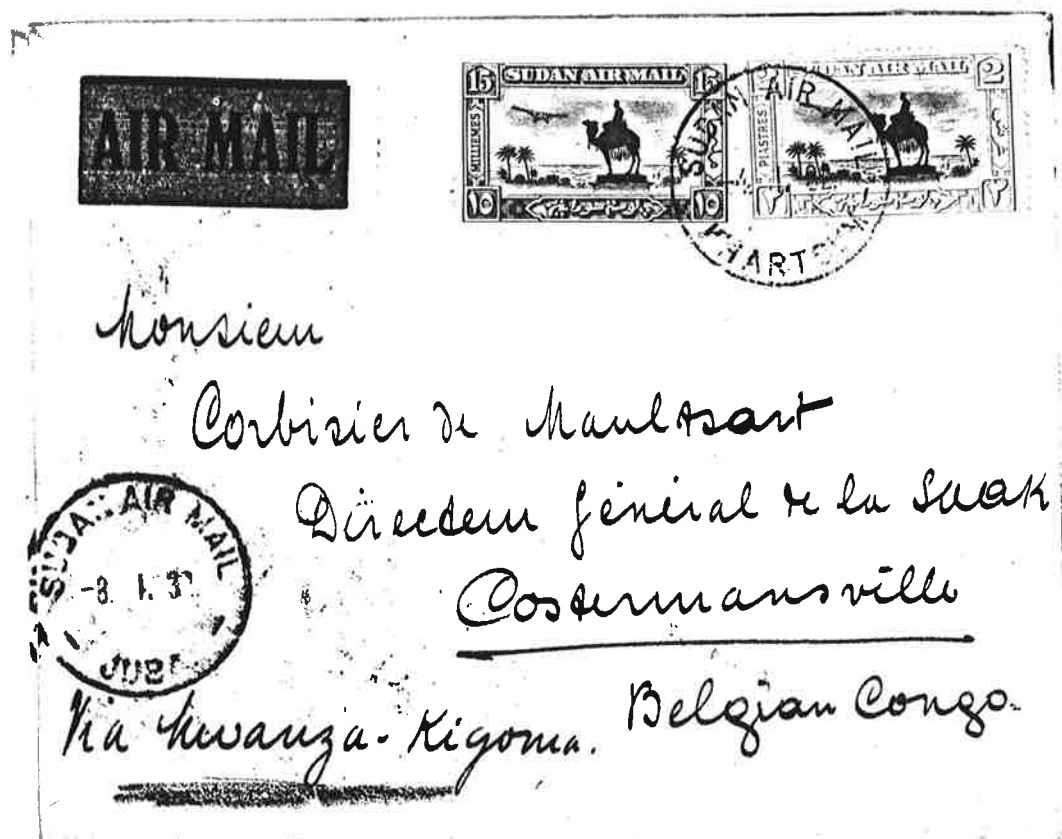 AIR MAIL
15 SUDAN AIR MAIL 15
MILLIEMES
١٥ ١٥
SUDAN AIR MAIL 2
PIASTRES
٢ ٢
SUDAN AIR MAIL
KHARTOUM
Monsieur
Corbisier de Maultsart
Directeur Général de la SAAK
Costermansville
Belgian Congo.
SUDAN AIR MAIL
-8. 1. 3
JUBA
Via Mwanza-Kigoma.